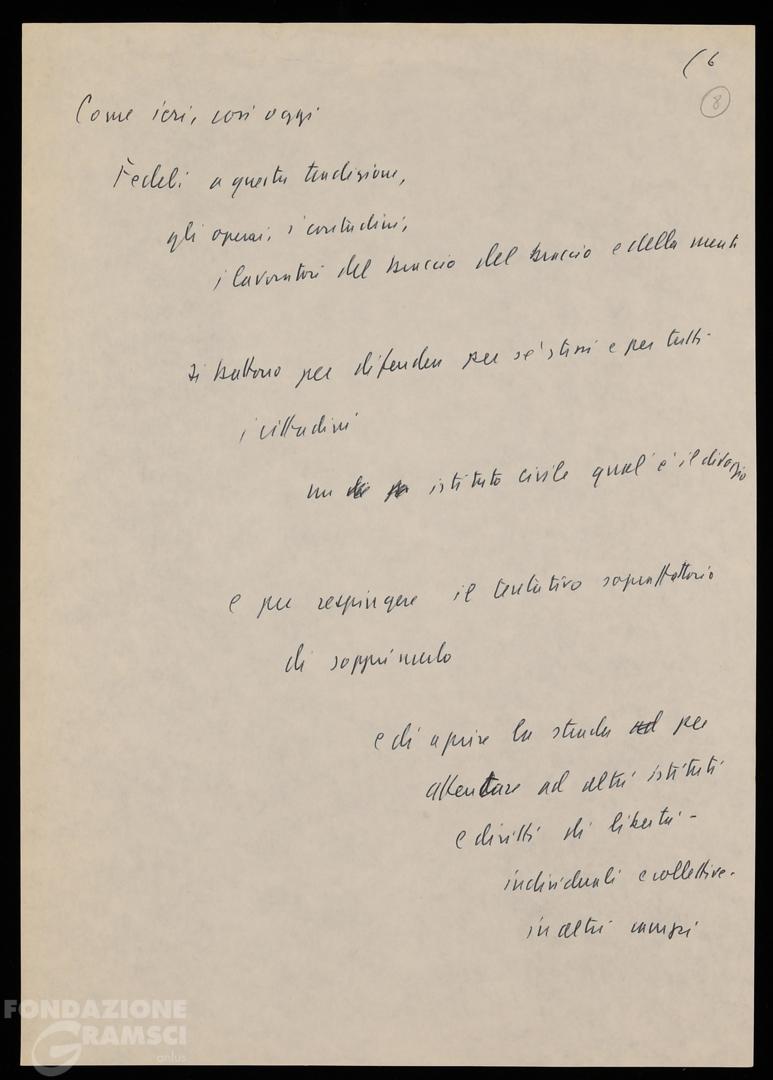 ( 6
8
Come ieri, così oggi
Fedeli a questa tradizione,
gli operai, i contadini,
i lavoratori del braccio del braccio e della mente
si battono per difendere per sé stessi e per tutti
i cittadini
un istituto civile qual'è il divorzio
e per respingere il tentativo sopraffattorio
di sopprimerlo
e di aprire la strada per
attentare ad altri istituti
e diritti di libertà -
individuali e collettive -
in altri campi
FONDAZIONE
GRAMSCI
onlus